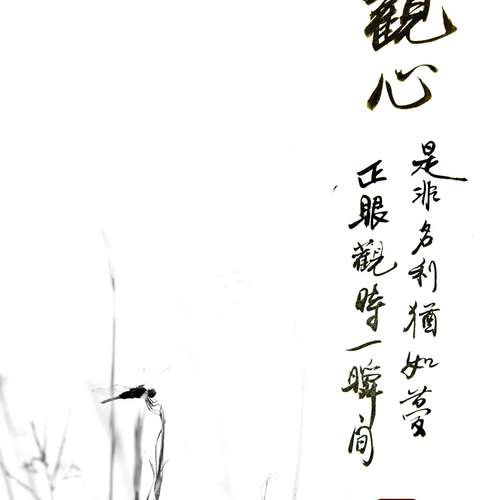 觀心
是非名利猶如夢
正眼觀時一瞬間